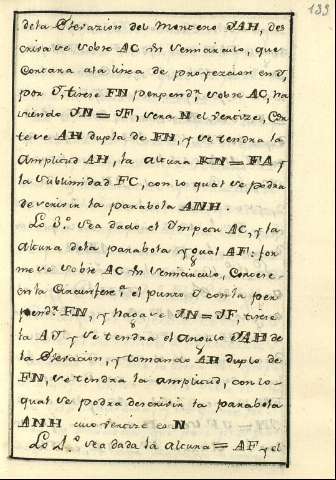 189
dela Elevazion del Mortero JAH, des
criva se sobre AC Un semicirculo, que
Cortara ala linea de proyeccion en J,
por J, tirese FN perpend.r sobre AC, ha
ciendo JN = JF, sera N el vertize, Cor
tese AH dupla de FN, y se tendra la
Amplitud AH, la altura KN = FA y
la sublimidad FC, con lo qual se podra
descrivir la parabola ANH.
Lo 3.º sea dado el Impetu AC, y la
altura dela parabola ygual AF: for
mese sobre AC Un semicirculo, Conoce
en la Circunfere.a el punto J con la per
pend.r FN, y haga se JN = JF, tirese
la AJ y se tendra el angulo JAH de
la Elevacion, y tomando AH duplo de
FN, se tendra la amplitud, con lo
qual se podra descrivir la parabola
ANH cuio vertize es N
Lo 4.º sea dada la altura = AF y el